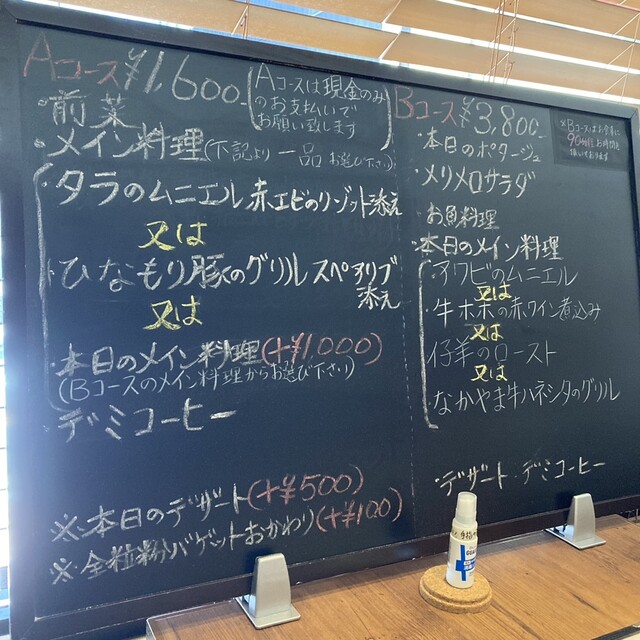 Aコース ¥1,600-
Aコースは現金のみ
のお支払いで
お願い致します
・前菜
・メイン料理(下記より一品お選び下さい)
・タラのムニエル 赤エビのリゾット添え
又は
・ひなもり豚のグリル スペアリブ添え
又は
・本日のメイン料理(+¥1,000)
(Bコースのメイン料理からお選び下さい)
・デミコーヒー
※・本日のデザート(+¥500)
※・全粒粉バゲットおかわり(+¥100)
Bコース ¥3,800-
※Bコースはお食事に
90分程お時間を
頂いております
・本日のポタージュ
・メリメロサラダ
・お魚料理
・本日のメイン料理
・アワビのムニエル
又は
・牛ホホの赤ワイン煮込み
又は
・仔羊のロースト
又は
・なかやま牛ハネシタのグリル
・デザート・デミコーヒー